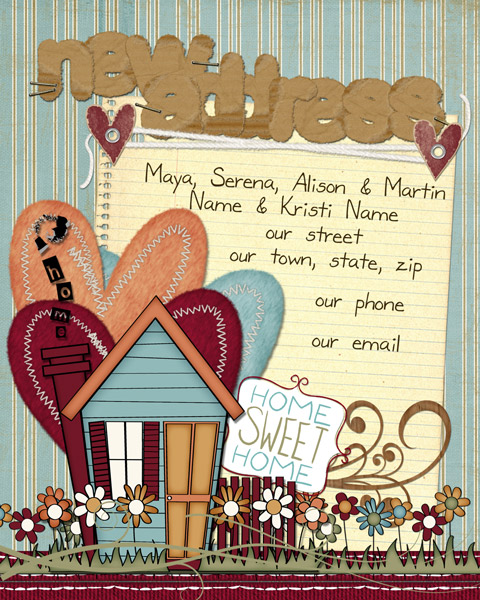 new
address
Maya, Serena, Alison & Martin
Name & Kristi Name
our street
our town, state, zip
our phone
our email
home
HOME
SWEET
HOME